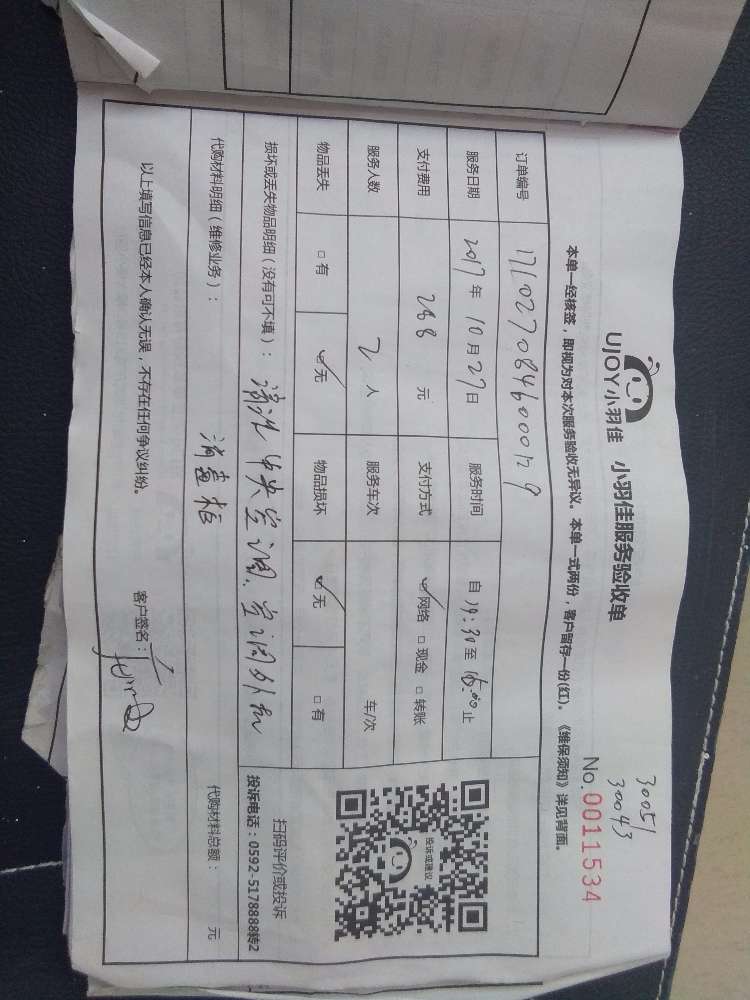 30051
30043
UJOY小羽佳 小羽佳服务验收单
No.0011534
本单一经核签，即视为对本次服务验收无异议。本单一式两份，客户留存一份(红)。《维保须知》详见背面。
订单编号 171027084600129
服务日期 2017年10月27日 服务时间 自14:30至16:00止
支付费用 288 元 支付方式 ☑网络 □现金 □转账
服务人数 2 人 服务车次 车/次
物品丢失 □有 ☑无 物品损坏 ☑无 □有
投诉或建议
扫码评价或投诉
投诉电话：0592-5178888转2
损坏或丢失物品明细（没有可不填）： 清洗中央空调、空调外机
消毒柜
代购材料明细（维修业务）： 代购材料总额： 元
以上填写信息已经本人确认无误，不存在任何争议纠纷。 客户签名：